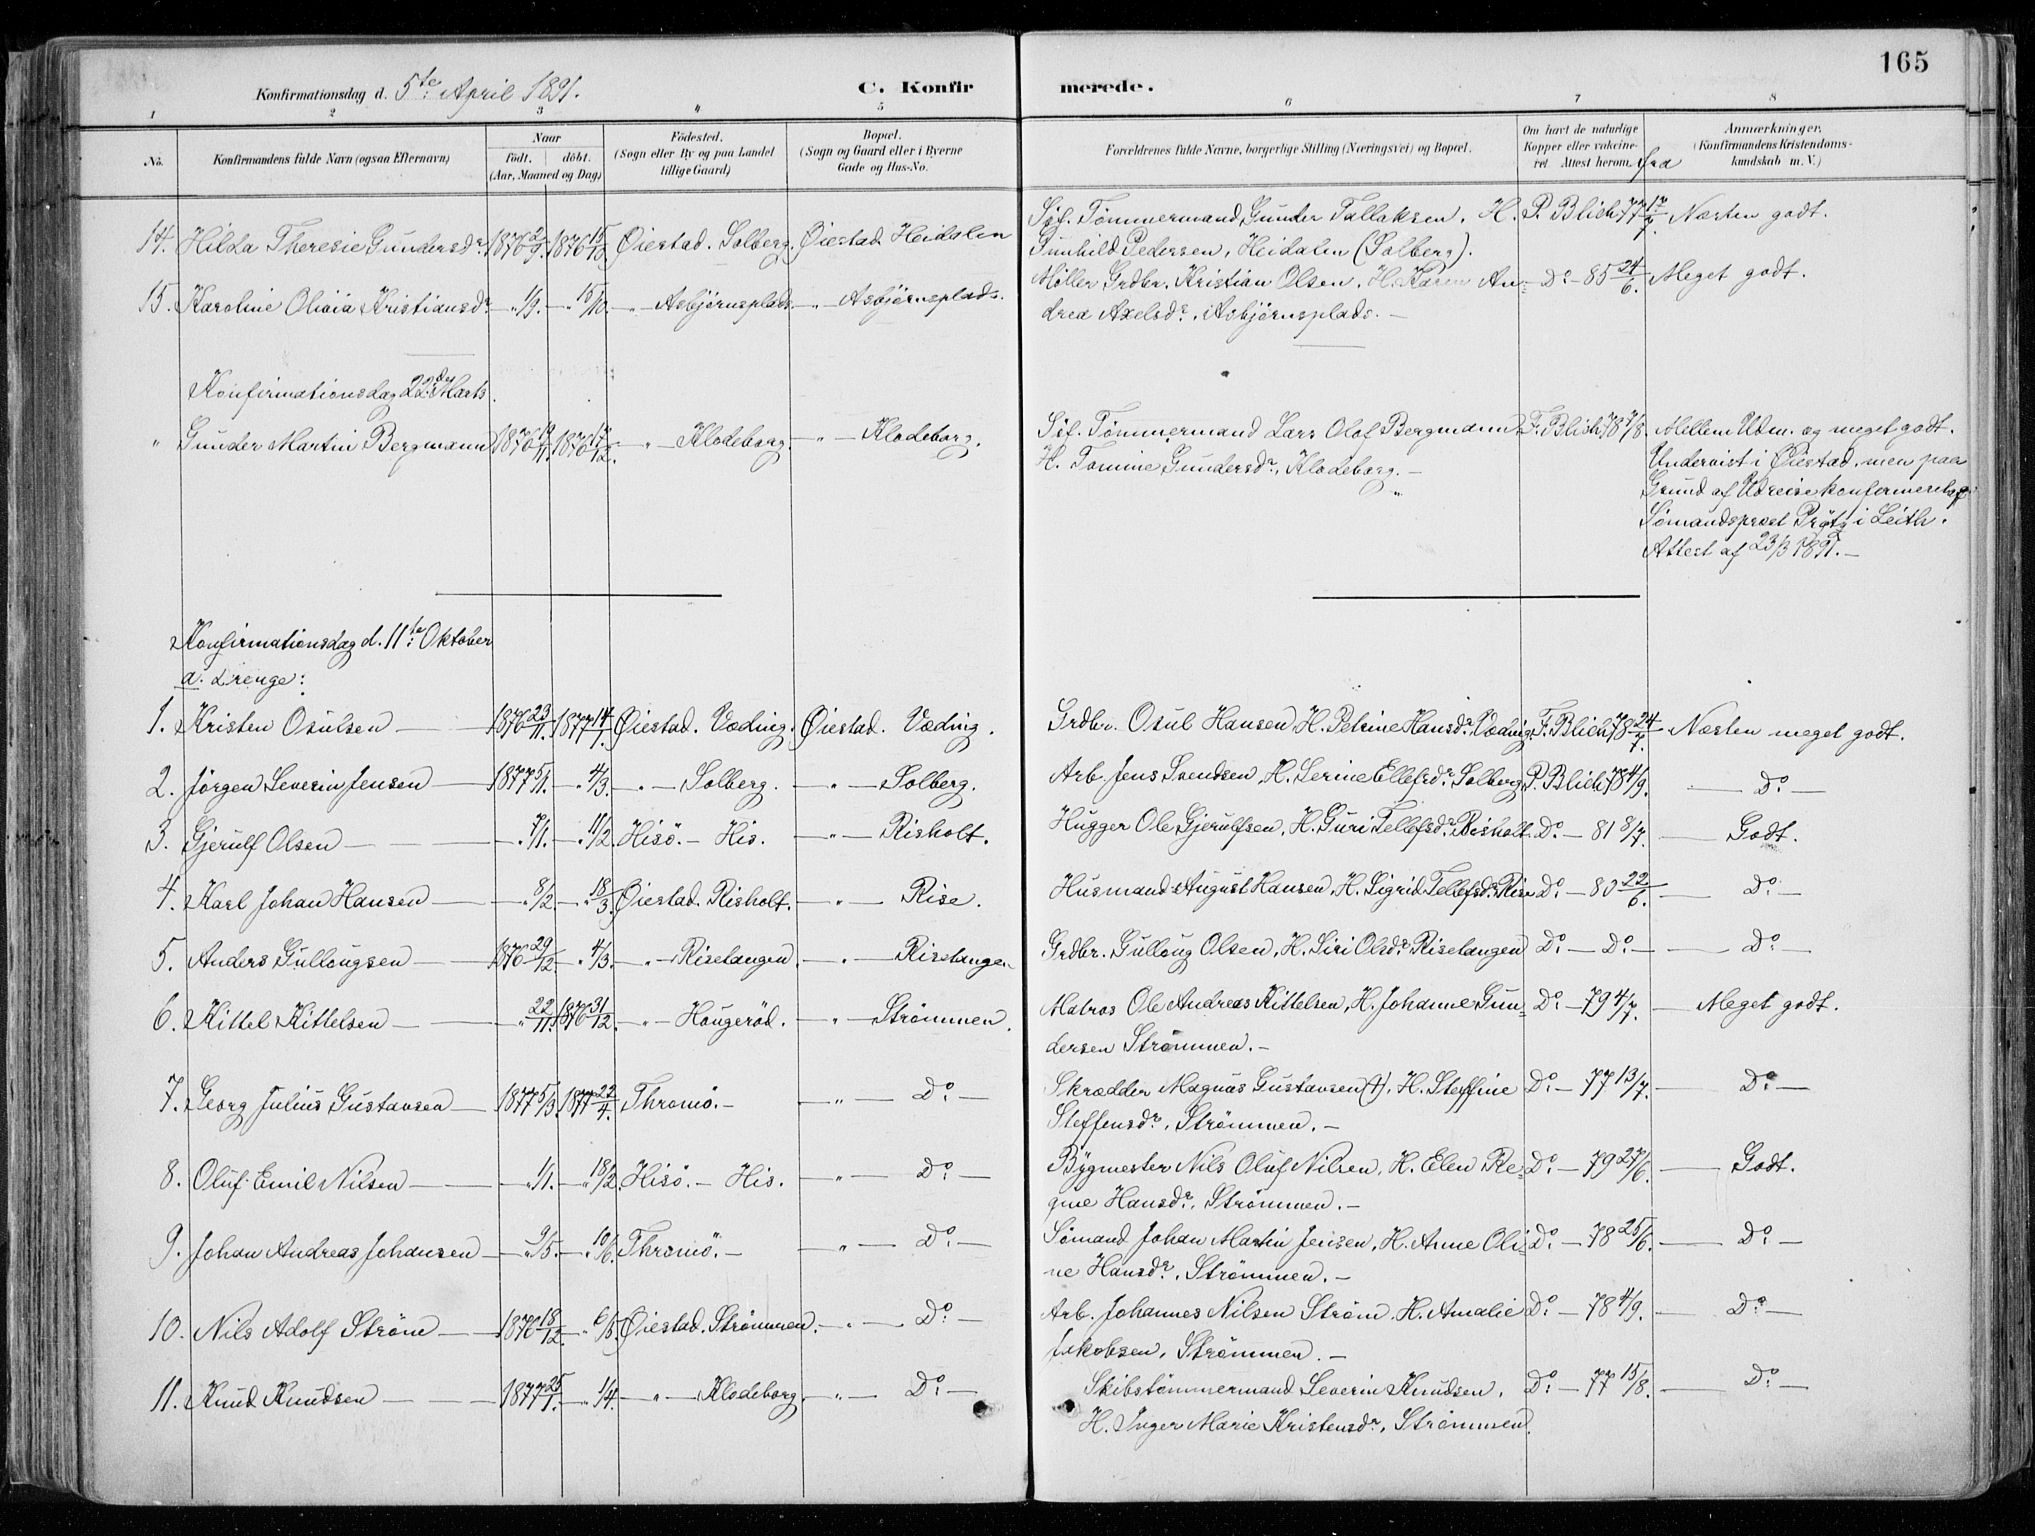 165
Konfirmationsdag d. 5te April 1891. C. Konfirmerede.
1 2 3 4 5 6 7 8
No. Konfirmandens fulde Navn (ogsaa Efternavn) Naar født. døbt. (Aar, Maaned og Dag) Fødested. (Sogn eller By og paa Landet tillige Gaard) Bopæl. (Sogn og Gaard eller i Byerne Gade og Hus-No. Forældrenes fulde Navne, borgerlige Stilling (Næringsvei) og Bopæl. Om havt de naturlige Kopper eller vakcineret. Attest herom fra Anmærkninger. (Konfirmandens Kristendomskundskab m. V.)
14. Hilda Theresie Gundersdr. 1876 2/9. 1876 15/10 Øiestad. Solberg. Øiestad Heidalen Søf. Tømmermand Gunder Tallaksen. H. P. Blich 77 17/7. Næsten godt.
Gunhild Pedersen, Heidalen (Solberg).
15. Karoline Olivia Kristiansdr. " 1/9. — " 15/10. — " — Asbjørnsplads. — " — Asbjørnsplads. Møller Grdbr. Kristian Olsen, H. Karen An- Do — 85 24/6. Meget godt.
drea Axelsdr., Asbjørnsplads. —
Konfirmationsdag 22de Marts.
" Gunder Martin Bergmann 1876 19/11. 1876 17/12. — " — Klodeborg. — " — Klodeborg. Søf. Tømmermand Lars Olof Bergmann F. Blich 78 7/8. Mellem Udm. og meget godt.
H. Tomine Gundersdr., Klodeborg. — Undervist i Øiestad, men paa
Grund af Udreise konfirmeret af
Sømandsprest i Leith.
Attest af 23/3 1891. —
Konfirmationsdag d. 11te Oktober
a. Drenge:
1. Kristen Osulsen — 1876 23/11. 1877 14/1. Øiestad. Væding. Øiestad. Væding. Grdbr. Osul Hansen, H. Petrine Hansdr. Væding. F. Blich 78 24/7. Næsten meget godt.
2. Jørgen Severin Jensen — 1877 5/1. — " 4/3. — " — Solberg. — " — Solberg. Arb. Jens Svendsen, H. Serine Ellefsdr. Solberg P. Blich 78 4/9. — Do —
3. Gjerulf Olsen — " 7/1. — " 11/2. Hisö. — His. — " — Risholt. Hugger Ole Gjerulfsen, H. Guri Tellefsdr. Risholt. Do — 81 8/7. — Godt.
4. Karl Johan Hansen — " 8/2. — " 18/3. Øiestad. Risholt. — " — Rise. Husmand August Hansen, H. Sigrid Tellefsdr. Rise Do — 80 22/6. — Do —
5. Anders Gullougsen — 1876 29/12. — " 4/3. — " — Risetangen. — " — Risetangen. Grdbr. Gulloug Olsen, H. Siri Olsdr. Risetangen Do — Do — — Do —
6. Kittel Kittelsen — " 22/11. 1876 31/12. — " — Hougeröd. — " — Strømmen. Matros Ole Andreas Kittelsen, H. Johanne Gun- Do — 79 4/7. — Meget godt.
dersen Strømmen. —
7. Georg Julius Gustavsen — 1877 5/3. 1877 22/4. Thromö. — — " — Do — Skrædder Magnus Gustavsen (†), H. Steffine Do — 77 13/7. — Do —
Steffensdr., Strømmen. —
8. Oluf Emil Nilsen — " 1/1. — " 18/2. Hisö. — His. — " — Do — Bygmester Nils Oluf Nilsen, H. Elen Re- Do — 79 27/6. — Godt.
gine Hansdr., Strømmen. —
9. Johan Andreas Johansen — " 9/5. — " 10/6. Thromö. — — " — Do — Sømand Johan Martin Jensen, H. Anne Oli- Do — 78 25/6. — Do —
ne Hansdr., Strømmen. —
10. Nils Adolf Strøm — 1876 18/12. — " 6/5. Øiestad. Strømmen. — " — Do — Arb. Johannes Nilsen Strøm, H. Amalie Do — 78 4/9. — Do —
Jakobsen, Strømmen. —
11. Knud Knudsen — 1877 25/1. — " 1/4. — " — Klodeborg. — " — Do — Skibstømmermand Severin Knudsen, Do — 77 15/8. — Do —
H. Inger Marie Kristensdr., Strømmen.